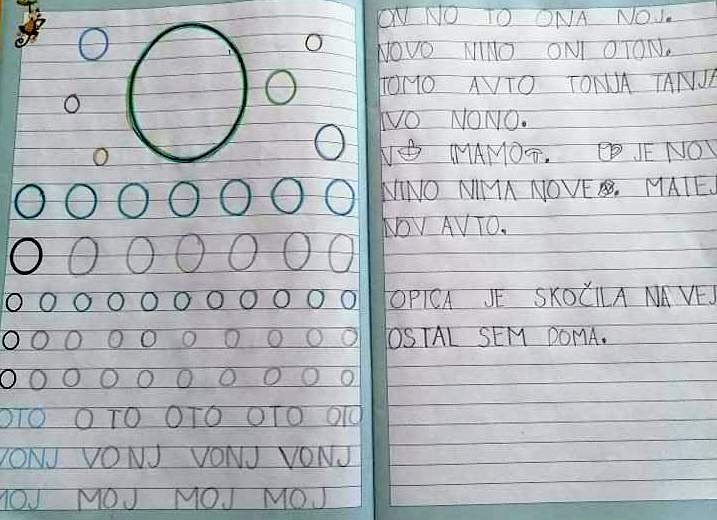 OTO O TO OTO OTO OTO
VONJ VONJ VONJ VONJ
MOJ MOJ MOJ MOJ
ON NO TO ONA NOJ.
NOVO NINO ONI OTON.
TOMO AVTO TONJA TANJA
IVO NONO.
V IMAMO. JE NOV
NINO NIMA NOVE. MATEJ
NOV AVTO.
OPICA JE SKOČILA NA VEJ
OSTAL SEM DOMA.